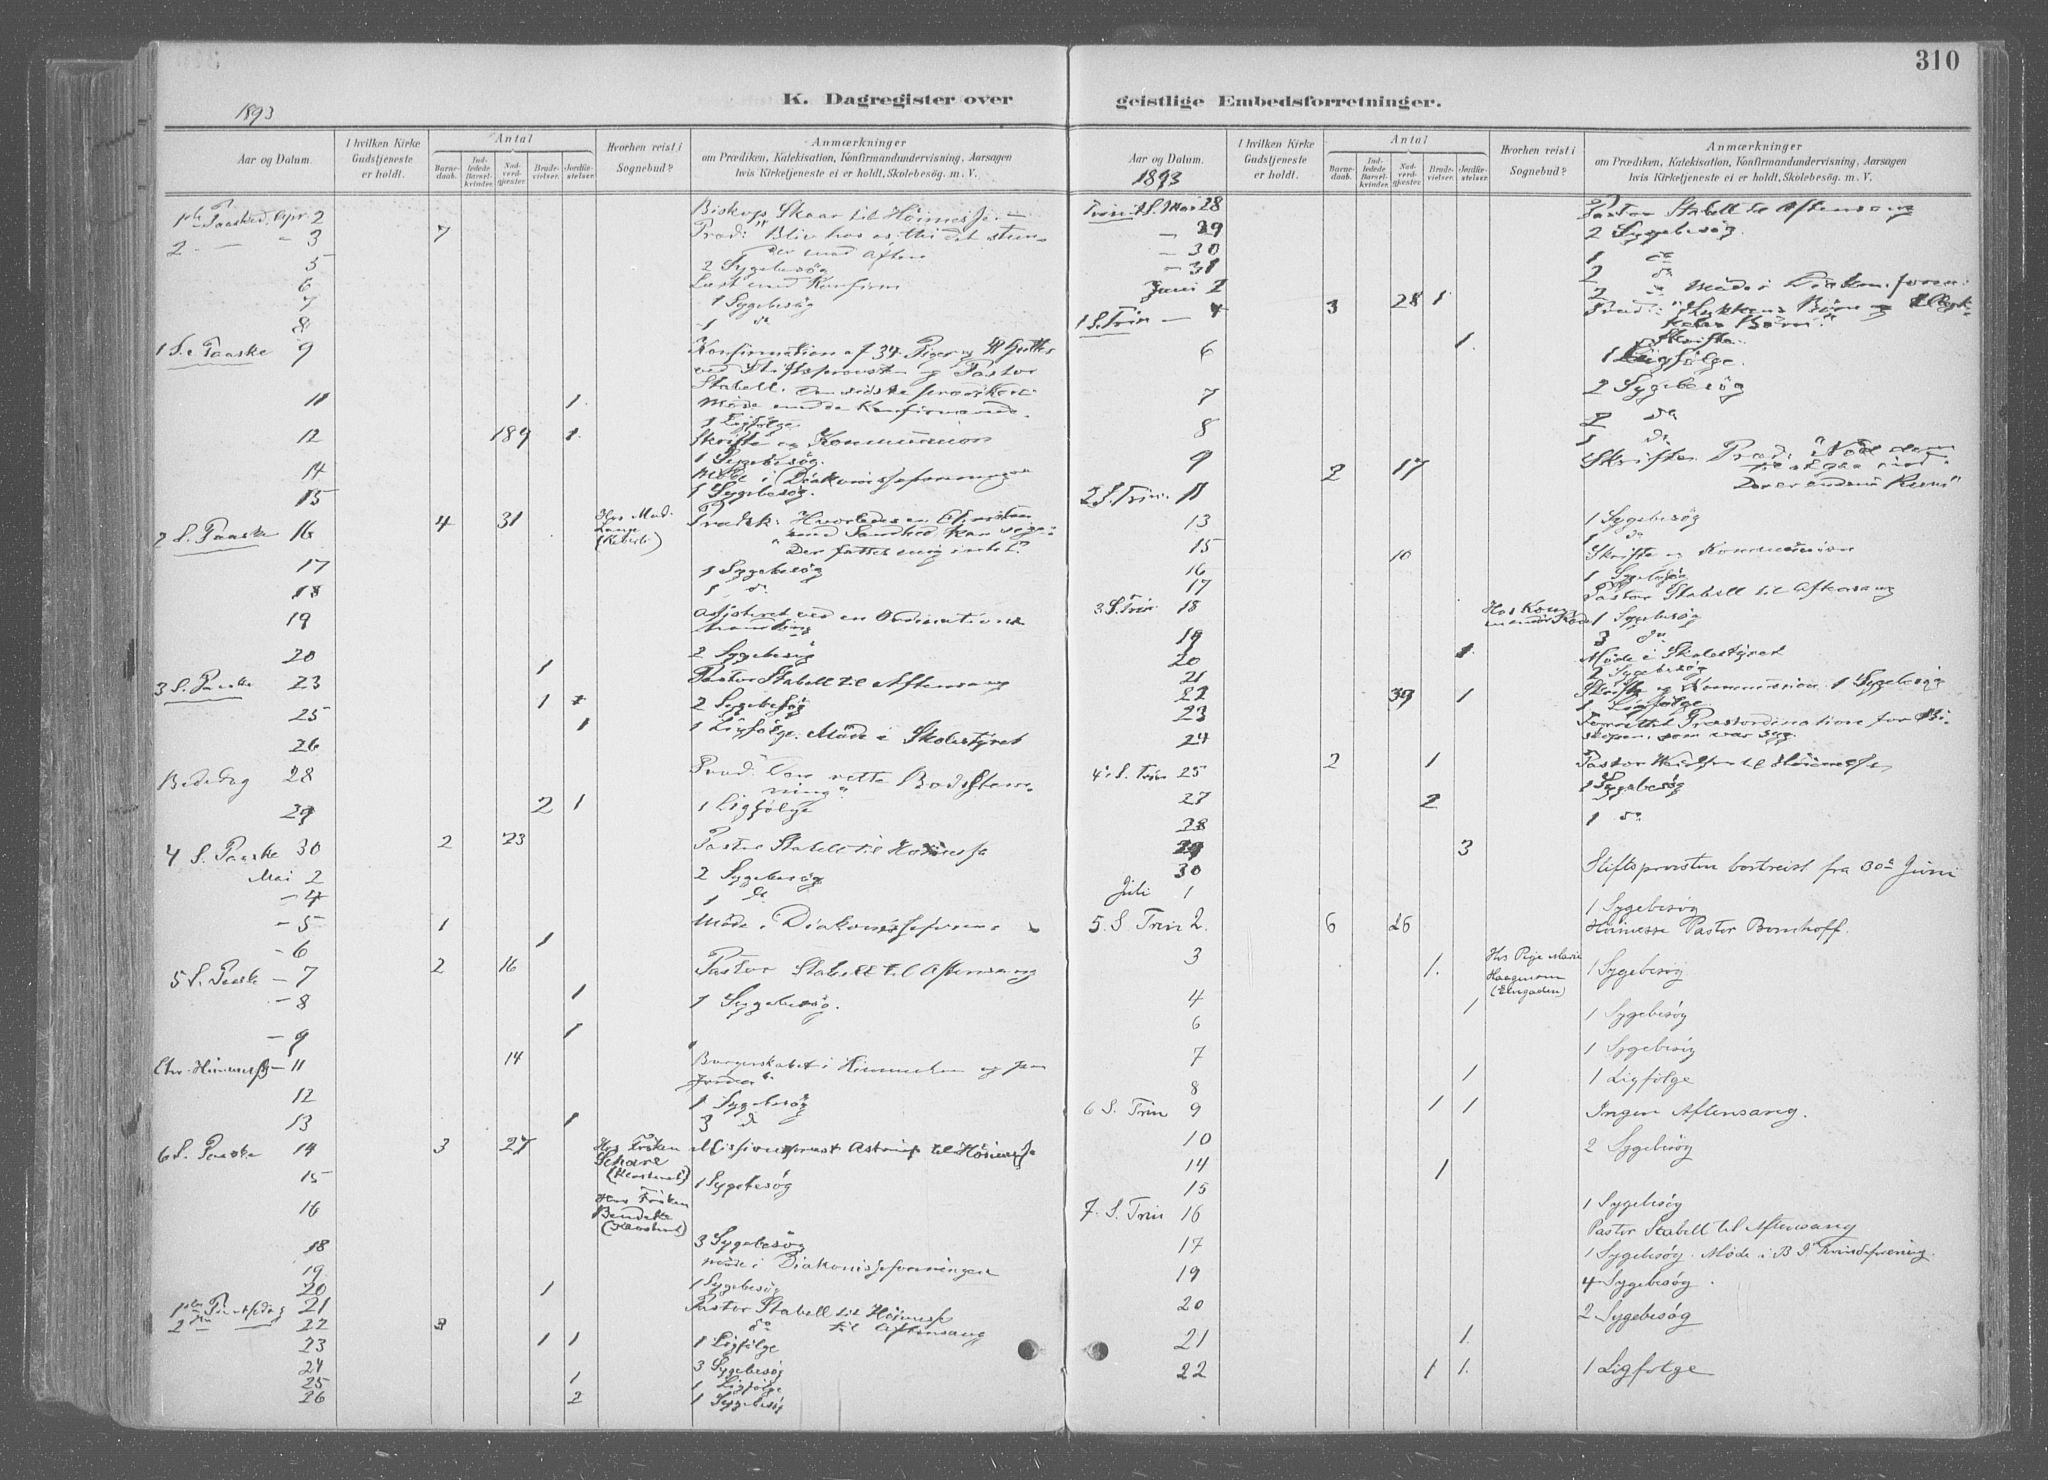 310
K. Dagregister over
geistlige Embedsforretninger.
1893
Aar og Datum.
I hvilken Kirke Gudstjeneste er holdt.
Antal
Barnedaab.
Indledede Barselkvinder.
Nadverdgjester.
Brudevielser.
Jordfæstelser.
Hvorhen reist i Sognebud?
Anmærkninger
om Prædiken, Katekisation, Konfirmandundervisning, Aarsagen
hvis Kirketjeneste ei er holdt, Skolebesøg. m. V.
1ste Paasked. Apr. 2 Biskop Skaar til Höimesse.
2 — - 3 7 Præd: "Bliv hos os, thi det stun-
der mod Aften
5 2 Sygebesög
6 Læst med Konfirm
7 1 Sygebesög
8 1 do
1 S. e Paaske 9 Konfirmation af 34 Piger og Gutter
ved Stiftsprovsten og Pastor
Stabell. den sidste prædiket
11 1. Möde med de Konfirmered.
1 Ligfölge
12 189 1. Skrifte og Kommunion
1 Sygebesög.
14 Möde i Diakonisseforeningen
15 1 Sygebesög.
2 S. Paaske 16 4 31 Hos Mad. Lange Prædk: Hvorledes en Christen
med Sandhed kan sige:
"Der fattes mig intet?
17 1 Sygebesög
18 1 do
19 Assisteret ved en Ordinations
handling
20 1 2 Sygebesög
3 S. Paaske 23 Pastor Stabell til Aftensang
25 1 2 Sygebesög
26 1 1 Ligfölge. Möde i Skolestyret
Bededag 28 Præd: Den rette Bodsstem-
ning".
29 2 1 1 Ligfölge
4 S. Paaske 30 2 23 Pastor Stabell til Höimesse
Mai 2 2 Sygebesög
- 4 1 do
- 5 1 Möde i Diakonisseforen.
- 6 1
5 S. Paaske - 7 2 16 Pastor Stabell til Aftensang
- 8 1 1 Sygebesög.
- 9 1
Chr. Himmelf - 11 14 Borgerskabet i Himmelen og paa
Jorden"
12 1 Sygebesög
13 1 3 do
6 S. Paaske 14 3 27 Hos Fröken Schare Missionsprest Astrup til Höimesse
15 1 Sygebesög
16 Hos Fröken
18 3 Sygebesög
19. Möde i Diakonisseforeningen
20 1 1 Sygebesög
1ste Pintsedag 21 Pastor Stabell til Höimesse
2den — 22 3 do til Aftensang
23 1 1 1 Ligfölge
24 3 Sygebesög
25 1 1 Ligfölge
26 2 1 Sygebesög
Aar og Datum.
1893
I hvilken Kirke Gudstjeneste er holdt.
Antal
Barnedaab.
Indledede Barselkvinder.
Nadverdgjester.
Brudevielser.
Jordfæstelser.
Hvorhen reist i Sognebud?
Anmærkninger
om Prædiken, Katekisation, Konfirmandundervisning, Aarsagen
hvis Kirketjeneste ei er holdt, Skolebesøg. m. V.
Trin. S. Mai 28 Pastor Stabell til Aftensang
- 29 2 Sygebesög.
- 30 1 do
- 31 2 do
Juni 2 2 do Möde i Diakon. foren:
1 S. Trin — 4 3 28 1. Præd: "Lykkens Börn og
Börn"
Skrifte.
6 1. 1 Ligfölge.
7 2 Sygebesög
8 2 do
9 1 do
2 S. Trin. 11 2 17 Skrifte. Præd: "Nöd dem
til at gaa ind.
Der er endnu Rum"
13 1 Sygebesög
15 10 1 do
Skrifte og Kommunion
16 1 Sygebesög
17 Pastor Stabell til Aftensang
3. S. Trin 18 1 Sygebesög
19 3 do
20 1. Möde i Skolestyret
21 2 Sygebesög
22 39 1 Skrifte og Kommunion. 1 Sygebesög
23 1 Ligfölge
24 Forrettet Præsteordination for Bi-
skopen, som var syg.
4de S. Trin 25 2 1 Pastor til Höimesse
27 2 1 Sygebesög
28 1 do
29 3
30 Stiftsprovsten bortreist fra 30te Juni
Juli 1 1 Sygebesög
5. S Trin 2. 6 26 Höimesse Pastor Bomhoff.
3 1. Hos Pige Marie 1 Sygebesög
4 1 1 Sygebesög
6 1 Sygebesög
7 1 1 Ligfölge
8
6 S. Trin 9 1 1 Ingen Aftensang.
10 2 Sygebesög
14 1
15 1 Sygebesög
7. S. Trin 16 Pastor Stabell til Aftensang
17 1 Sygebesög. Möde i Kvindeforening.
19 4 Sygebesög.
20 2 Sygebesög
21 1.
22 1 1. 1 Ligfölge